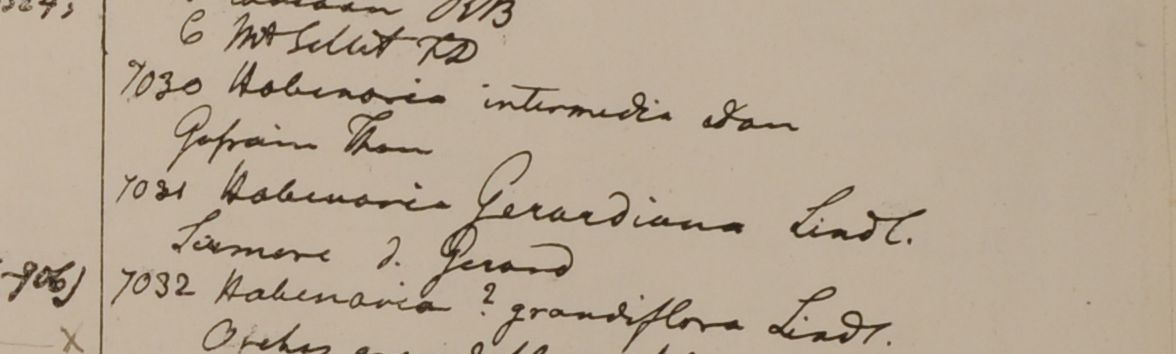 RB
6 Mt Sillet RD
7030 Habenaria intermedia Don
Gosain Than
7031 Habenaria Gerardiana Lindl.
Sirmore d. Gerard
7032 Habenaria ? grandiflora Lindl.